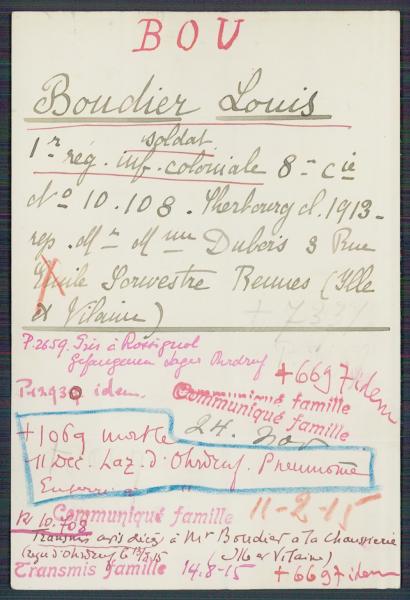 BOU
Boudier Louis
soldat
1r rég. inf. coloniale 8e Cie
No 10.108. Cherbourg cl. 1913-
rep. Mr Mme Dubois 3 Rue
Emile Sorvestre Rennes (Ille
et Vilaine)
P. 2659. Pris à Rossignol
Gefangenen Lager Ohrdruf
+6697 idem
P. 12930 idem.
Communiqué famille
Communiqué famille
24. Nov
+1069 mort le
11 Déc. Laz. d'Ohrdruf. Pneumonie
Communiqué famille 11-2-15
R 10.708
Transmis avis décès à Mr Boudier à la Chausserie
(Ille et Vilaine)
Transmis famille 14.8-15 +6697 idem